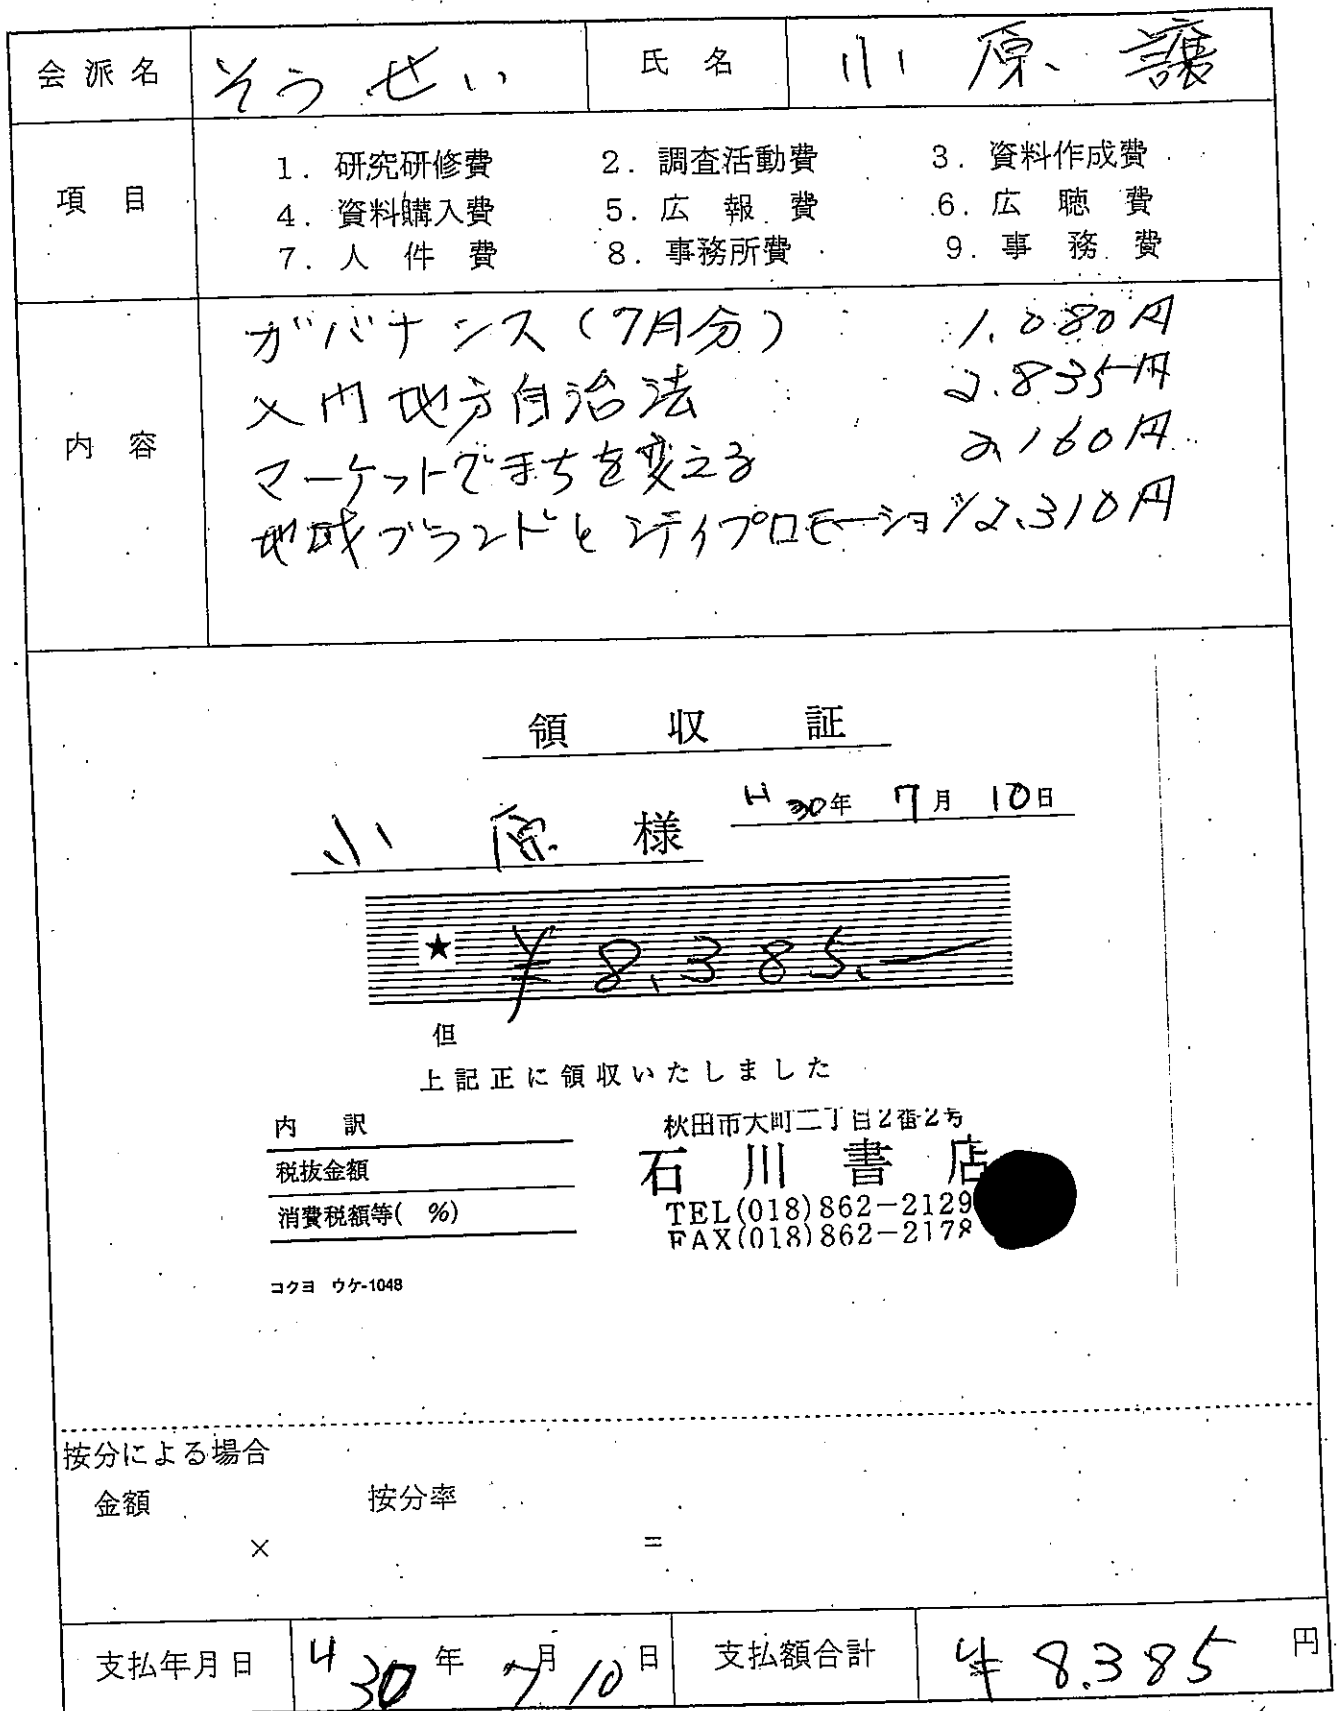 会派名 そうせい 氏名 小原 譲
項目 1. 研究研修費 2. 調査活動費 3. 資料作成費
4. 資料購入費 5. 広報費 6. 広聴費
7. 人件費 8. 事務所費 9. 事務費
内容
ガバナンス(7月分) 1.080円
入門地方自治法 2.835円
マーケットでまちを変える 2,160円
地域ブランドとシティプロモーション 2.310円
領収証
小原様 H30年 7月 10日
★ ¥8,385.―
但
上記正に領収いたしました
内訳
税抜金額
消費税額等( %)
秋田市大町二丁目2番2号
石川書店
TEL(018)862-2129
FAX(018)862-2178
コクヨ ウケ-1048
按分による場合
金額 按分率
× =
支払年月日 H30年 7月 10日 支払額合計 ¥8.385円